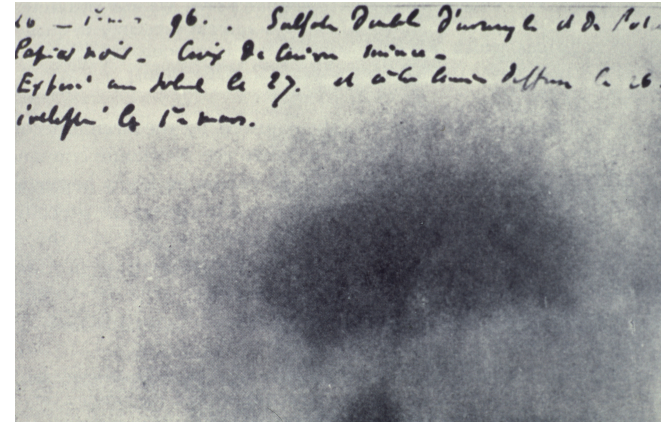 96. . Sulfate Double d'uranyle et de Pot
Papier noir. Croix de Cuivre mince.
Exposé au Soleil le 27. et à la lumière diffuse le 26.
développé le 1er mars.